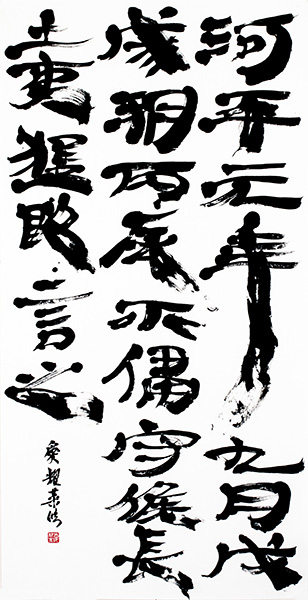 河平元年九月戊
戌朔丙辰不侵守候長
士吏猛敢言之